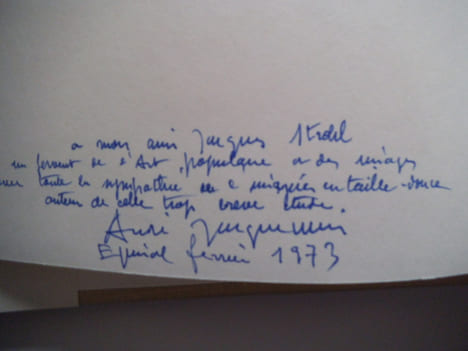 a mon ami Jacques
un fervent de l'Art populaire et des images
avec toute la sympathie en taille-douce
auteur de cette trop brève étude.
André Jacquemin
Epinal février 1973